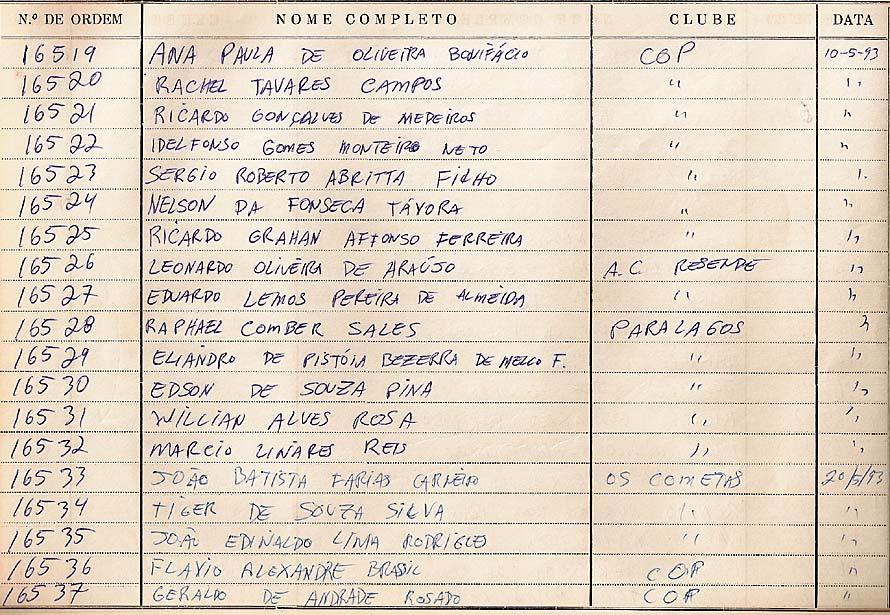 N.º DE ORDEM NOME COMPLETO CLUBE DATA
16519 ANA PAULA DE OLIVEIRA BONIFÁCIO COP 10-5-93
16520 RACHEL TAVARES CAMPOS " "
16521 RICARDO GONÇALVES DE MEDEIROS " "
16522 IDELFONSO GOMES MONTEIRO NETO " "
16523 SERGIO ROBERTO ABRITTA FILHO " "
16524 NELSON DA FONSECA TÁVORA " "
16525 RICARDO GRAHAN AFFONSO FERREIRA " "
16526 LEONARDO OLIVEIRA DE ARAÚJO A.C. RESENDE "
16527 EDUARDO LEMOS PEREIRA DE ALMEIDA " "
16528 RAPHAEL COMBER SALES PARALAGOS "
16529 ELIANDRO DE PISTÓIA BEZERRA DE MELLO F. " "
16530 EDSON DE SOUZA PINA " "
16531 WILLIAN ALVES ROSA " "
16532 MARCIO LINARES REIS " "
16533 JOÃO BATISTA FARIAS CARNEIRO OS COMETAS 20/5/93
16534 TIGER DE SOUZA SILVA " "
16535 JOÃO EDINALDO LIMA RODRIGUES " "
16536 FLAVIO ALEXANDRE BRASIL COP "
16537 GERALDO DE ANDRADE ROSADO COP "